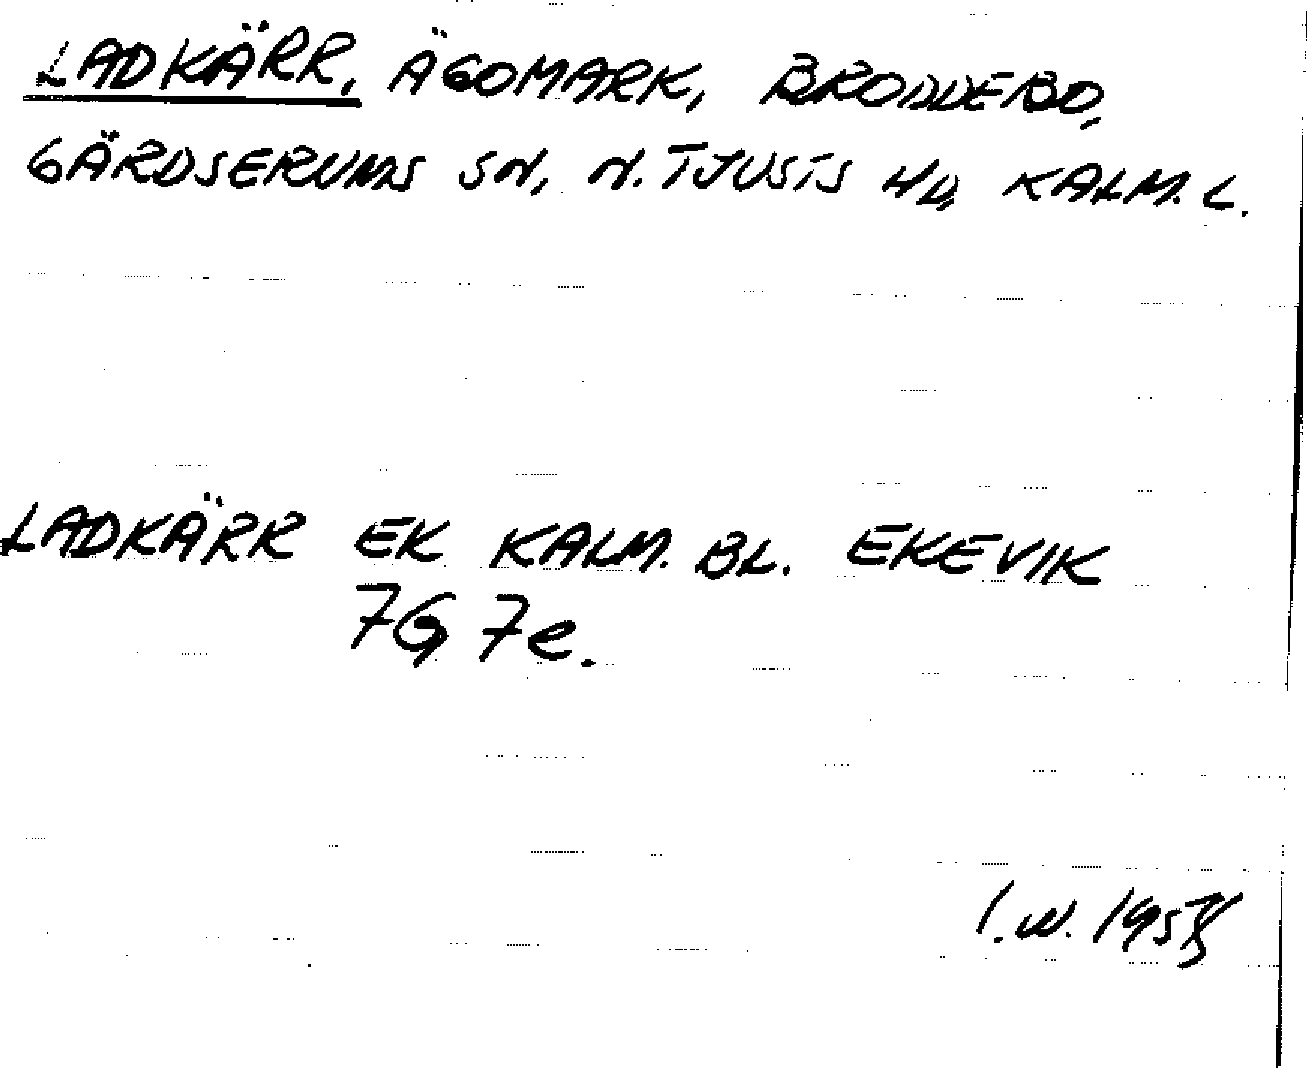 LADKÄRR, ÄGOMARK, BRODDEBO,
GÄRDSERUMS SN, N. TJUSTS HD, KALM. L.
LADKÄRR EK KALM. BL. EKEVIK
7G 7e.
I.W.